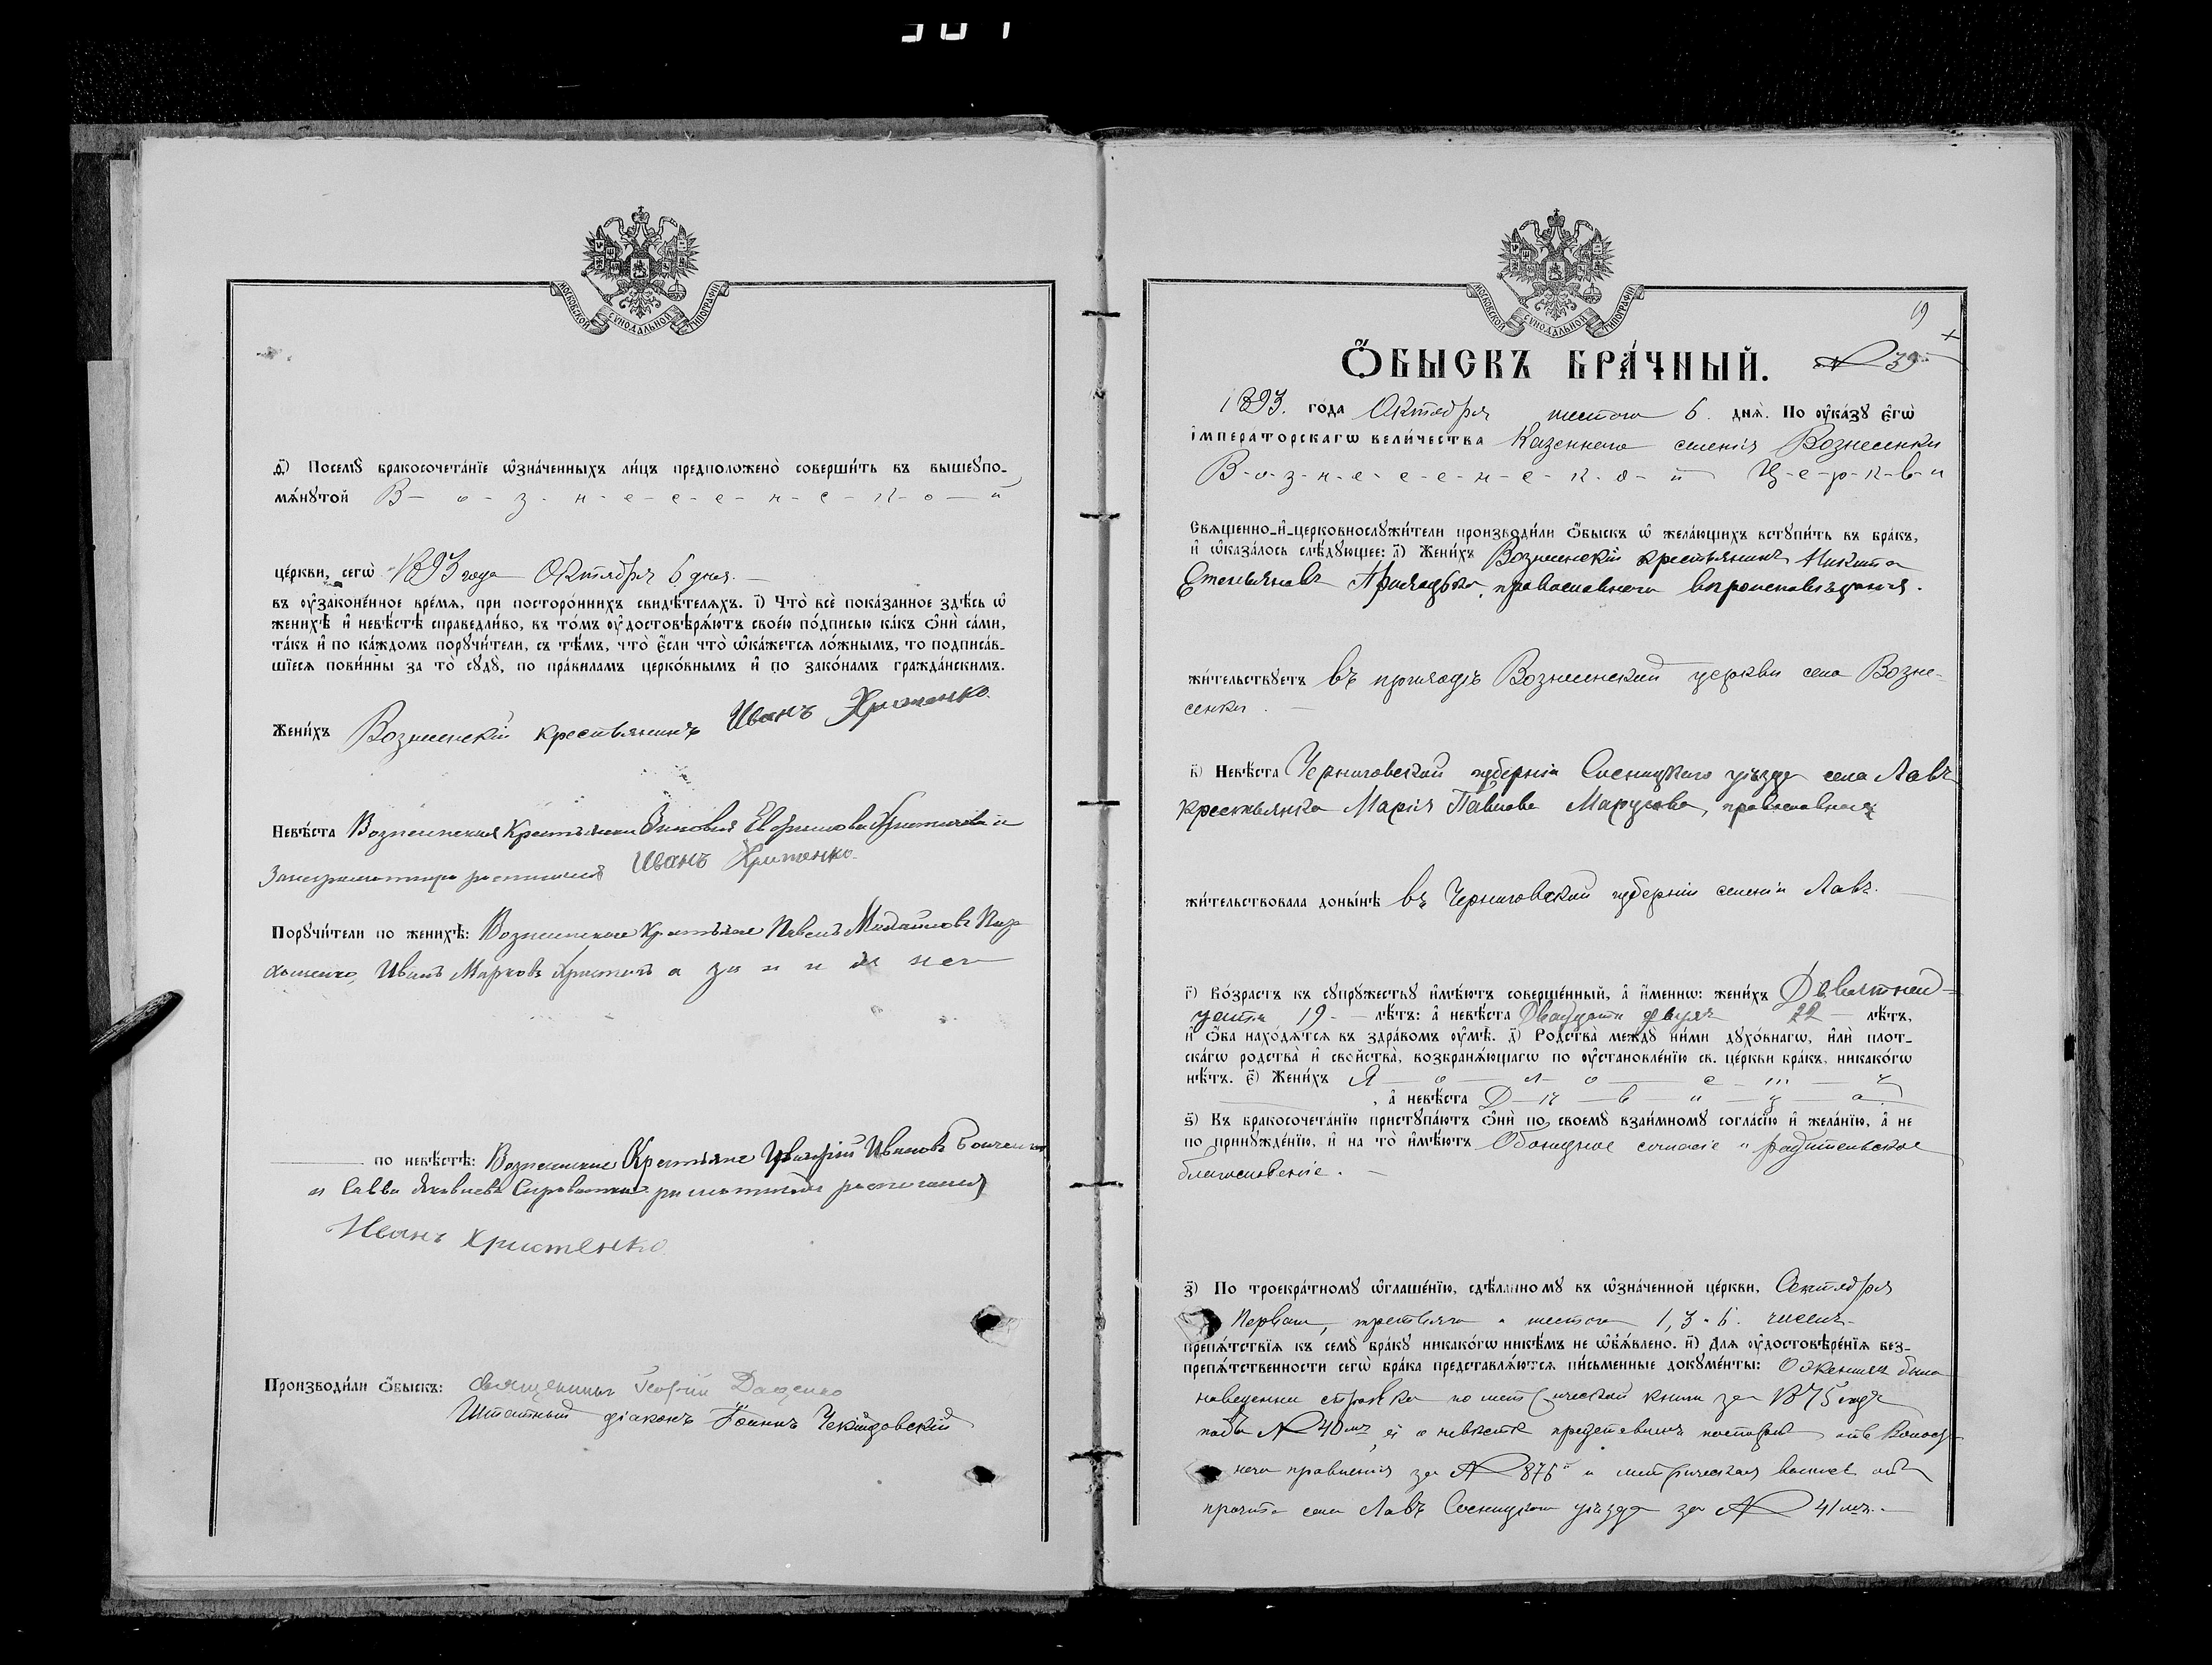 МОСКОВСКОЙ СѴНОДАЛЬНОЙ ТИПОГРАФІИ
ѳ҃) Посемꙋ̀ бракосочета́нїе ѡ҆зна́ченныхъ ли́цъ предположено̀ соверши́ть въ вышеꙋпо-
мѧ́нꙋтой В-о-з-н-е-с-е-н-с-к-о-й
це́ркви, сегѡ̀ 1893 года Октября 6 дня.
въ ᲂу҆зако́не́нное вре́мѧ, при посторо́ннихъ свидѣ́телѧхъ. і҃) Что̀ всѐ пока́занное здѣ́сь ѡ҆
женихѣ̀ и҆ невѣ́стѣ справедли́во, въ то́мъ ᲂу҆достовѣрѧ́ютъ свое́ю по́дписью ка́къ ѻ҆нѝ са́ми,
та́къ и҆ по ка́ждомъ порꙋчи́тели, съ тѣ́мъ, что̀ є҆́сли что̀ ѡ҆ка́жетсѧ ло́жнымъ, то подписа́в-
шїесѧ пови́нны за то̀ сꙋдꙋ̀, по пра́виламъ церко́внымъ и҆ по зако́намъ гражда́нскимъ.
Жени́хъ Вознесенскій крестьянинъ Иванъ Христенко.
Невѣ́ста Вознесенская Крестьянка
Иванъ Христенко.
Порꙋчи́тели по женихѣ̀: Вознесенские Крестьяне Павелъ Михайловъ Пар
хоменко, Иванъ Марковъ а за н и хъ нег
по невѣ́стѣ: Вознесенские Крестьяне Григорій Ивановъ
и Савва Яковлевъ
Иванъ Христенко
Производи́ли ѻ҆́быскъ: Священникъ Георгій Даценко
Штатный діаконъ Іоаннъ
МОСКОВСКОЙ СѴНОДАЛЬНОЙ ТИПОГРАФІИ
19
Ѻ҆БЫСКЪ БРА́ЧНЫЙ. № 39
1893. го́да Октября шестого 6. днѧ̀. По ᲂу҆ка́зꙋ є҆гѡ̀
і҆мпера́торскагѡ вели́чества Казеннаго селенія Вознесенки
В-о-з-н-е-с-е-н-с-к-о-й Ц-е-р-к-в-и
Свѧще́нно-и҆-церковнослꙋжи́тели производи́ли ѻ҆́быскъ ѡ҆ жела́ющихъ встꙋпи́ть въ бра́къ,
и҆ ѡ҆каза́лось слѣ́дꙋющее: а҃) Жени́хъ Вознесенскій крестьянинъ Никита
Стефановъ православнаго вѣроисповѣданія.
жи́тельствꙋетъ въ приходѣ Вознесенской церкви села Возне-
сенки.
в҃) Невѣ́ста Черниговской губерніи Сосницкаго уѣзда села Лавъ
крестьянка Марія Павлова православная
жи́тельствовала доны́нѣ въ Черниговской губерніи селеніи Лавъ.
г҃) Во́зрастъ къ сꙋпрꙋ́жествꙋ и҆мѣ́ютъ соверше́нный, а҆ и҆́меннѡ: жени́хъ Девятнад-
цати 19 лѣ́тъ: а҆ невѣ́ста Двадцати двухъ 22 лѣ́тъ,
и҆ ѻ҆́ба нахо́дѧтсѧ въ здра́вомъ ᲂу҆мѣ̀. д҃) Родства̀ междꙋ̀ ни́ми дꙋхо́внагѡ, и҆лѝ плот-
ска́гѡ родства̀ и҆ свойства̀, возбранѧ́ющагѡ по ᲂу҆становле́нїю св. це́ркви бра́къ, никако́гѡ
нѣ́тъ. є҃) Жени́хъ Х-о-л-о-с-т-ъ
, а҆ невѣ́ста Д-ѣ-в-и-ц-а
ѕ҃) Къ бракосочета́нїю пристꙋпа́ютъ ѻ҆нѝ по своемꙋ̀ взаи́мномꙋ согла́сїю и҆ жела́нїю, а҆ не
по принꙋжде́нїю, и҆ на то̀ и҆мѣ́ютъ Обоюдное согласіе и родительское
благословеніе.
з҃) По троекра́тномꙋ ѡ҆глаше́нїю, сдѣ́ланномꙋ въ ѡ҆зна́ченной це́ркви, Октября
Перваго, третьяго и шестого 1, 3 и 6. чиселъ
препѧ́тствїѧ къ семꙋ̀ бра́кꙋ никако́гѡ никѣ́мъ не ѡ҆б̾ѧ́влено. и҃) Для ᲂу҆достовѣре́нїѧ без-
препѧ́тственности сегѡ̀ бра́ка представлѧ́ютсѧ пи́сьменные докꙋме́нты: О женихѣ была
наведенна справка по метрической книгѣ за 1875 годъ
подъ № 40мъ, а о невѣстѣ предъставленъ паспортъ отъ Волост-
наго правленія за № 876 и метрическая выпись отъ
причта села Лавъ Сосницкаго уѣзда за № 41мъ.